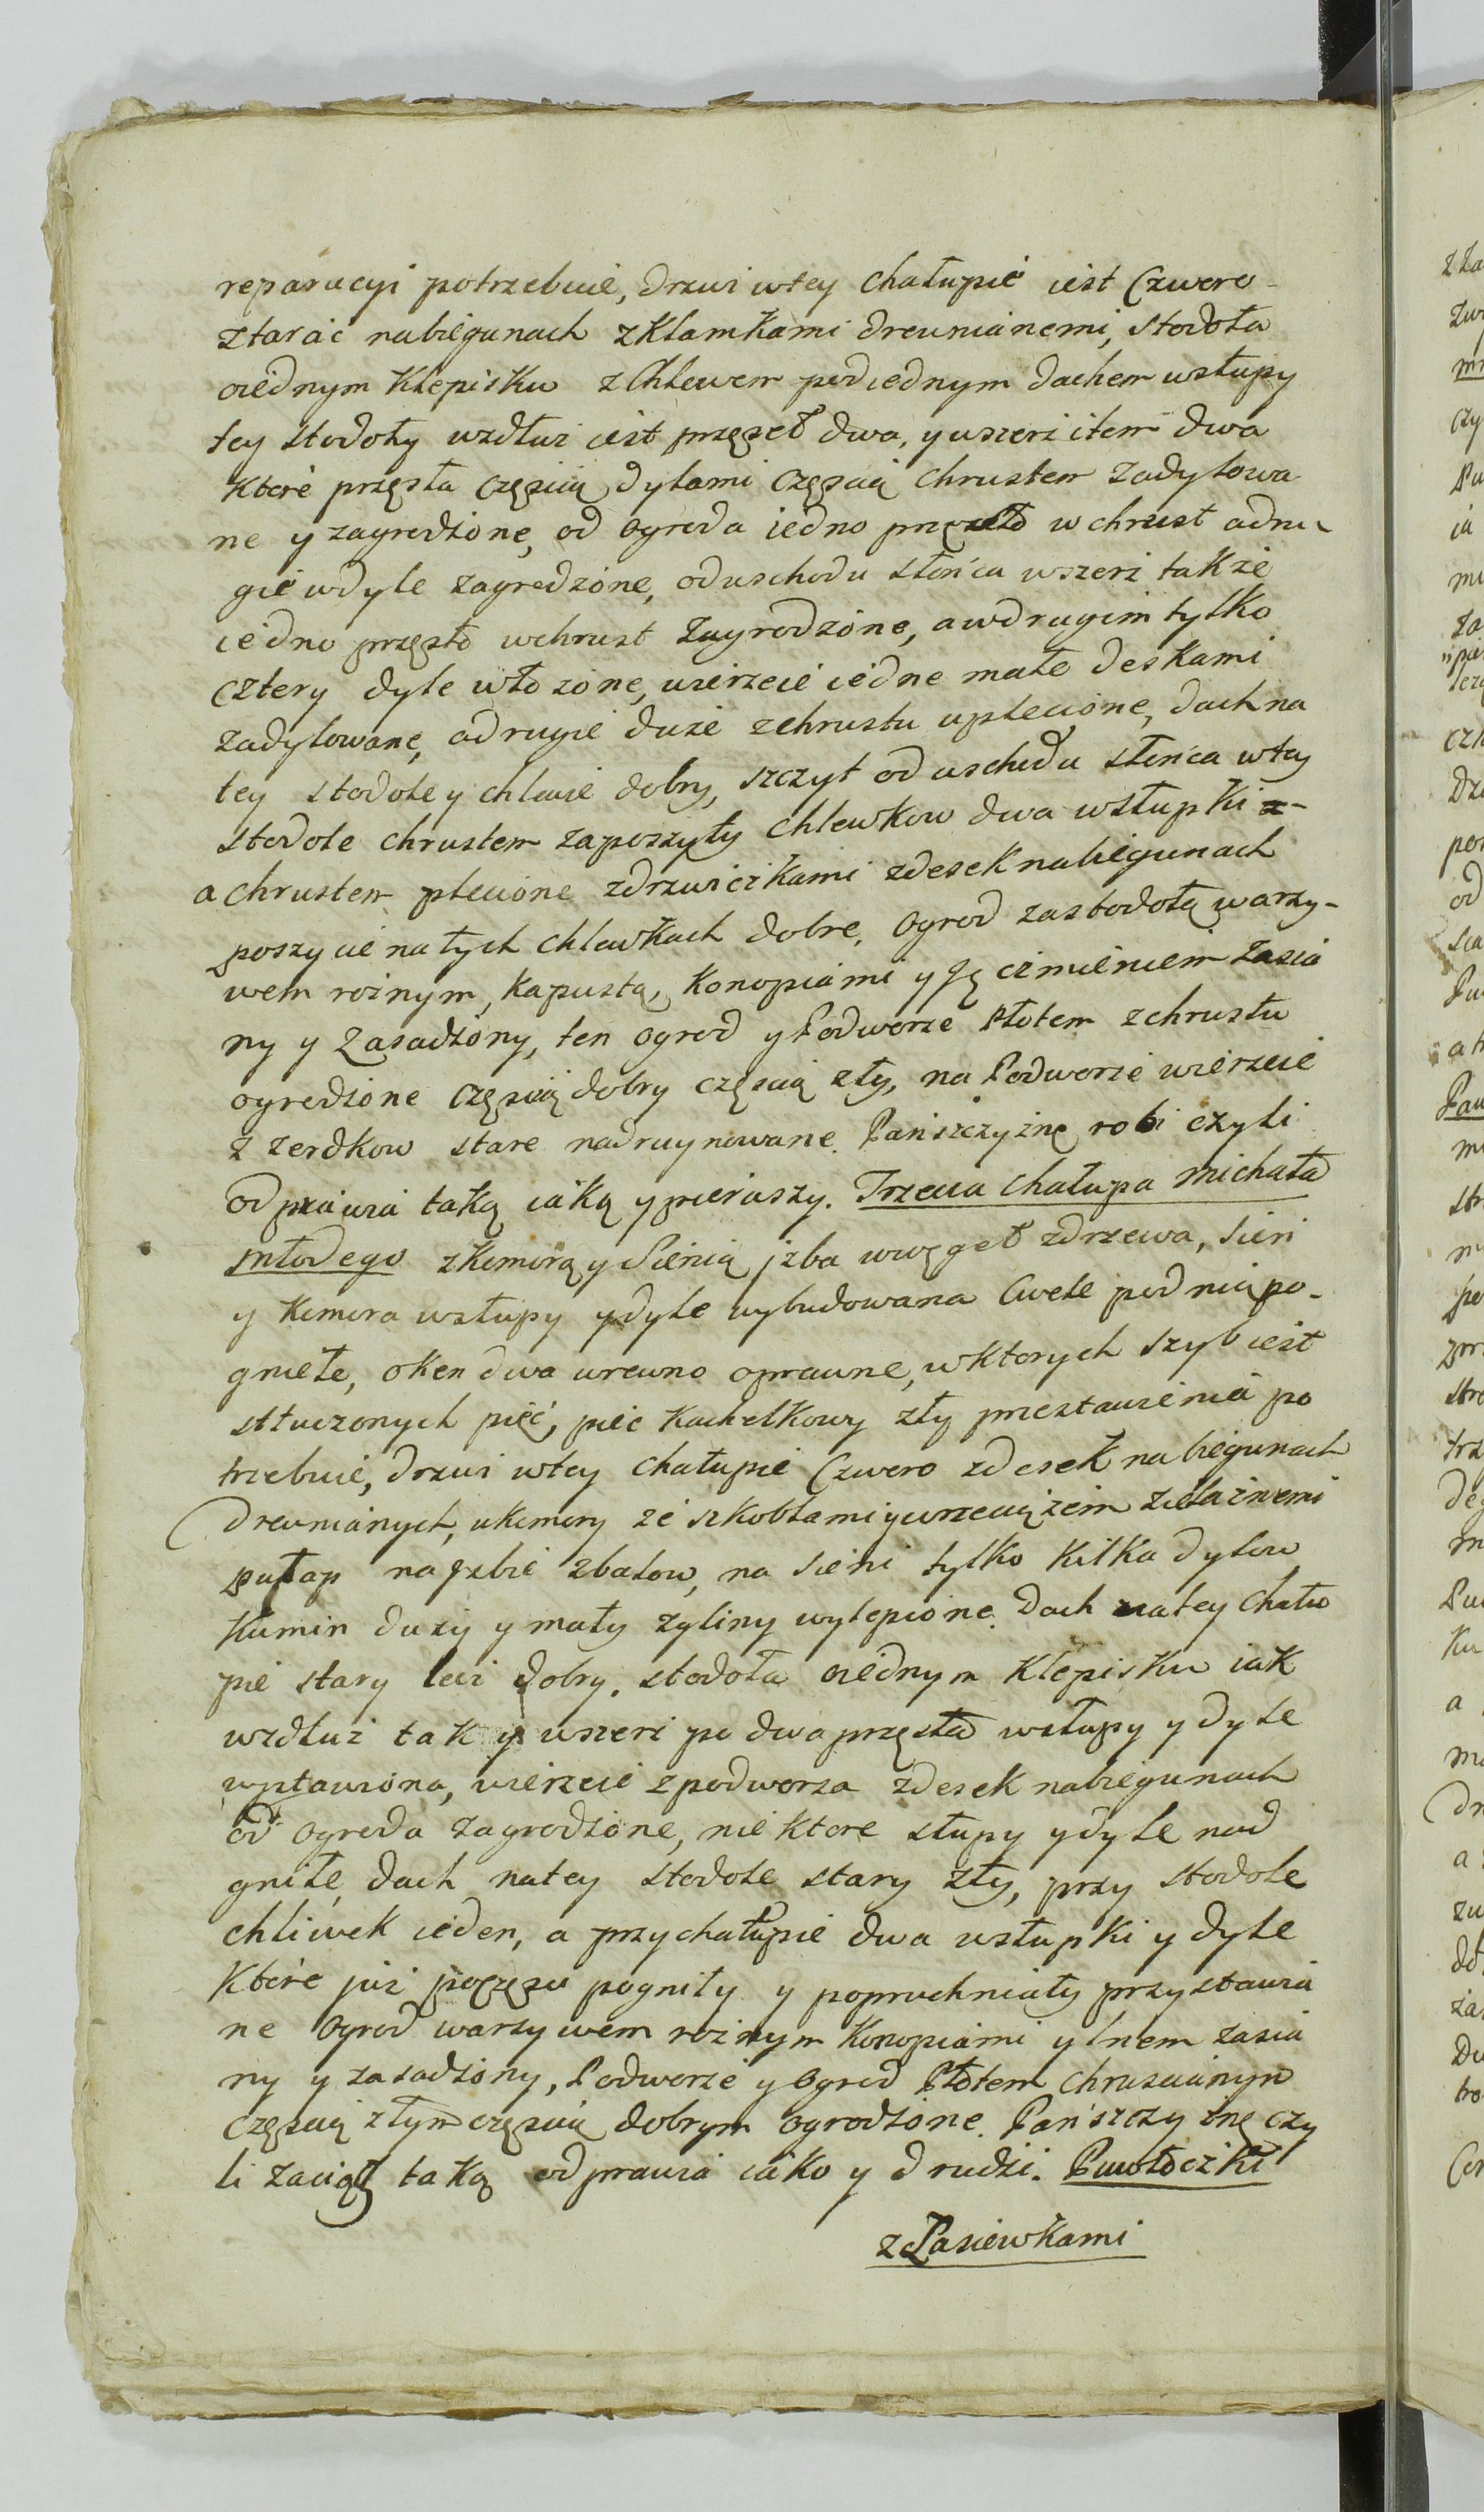 reparacyi potrzebuie, drzwi wtey chałupie iest Czworo
ztarcic nabiegunach zKlamkami drewnianemi, stodoła
oiednym Klepisku zChlewem podiednym dachem wsłupy
tey stodoły wzdłuż iest przęseł dwa, ywszerz item dwa
Ktore przęsła częscią dylami częscią chrustem zadylowa
ne y zagrodzone, od ogroda iedno przęsło wchrust adru
gie wdyle zagrodzone, odwschodu słońca wszerz także
iedno przęsło wchrust zagrodzone, awdrugim tylko
cztery dyle włożone, wierzeie iedne małe deskami
zadylowane, adrugie duże zchrustu uplecione, dach na
tey stodole y chlewie dobry, szczyt odwschodu słońca wtey
stodole chrustem zaposzyty chlewkow dwa wsłupki
a chrustem plecione zdrzwiczkami zdesek nabiegunach
poszycie natych chlewkach dobre, ogrod zastodołą warzy-
wem rożnym, kapustą, Konopiami y Jęczmieniem zasia
ny y zasadzony, ten ogrod yPodworze Płotem zchrustu
ogrodzone częscią dobry częscią zły, na Podworze wierzeie
z zerdkow stare nadruynowane. Pańszczyznę robi czyli
odprawia taką iaką ypierwszy. Trzecia chałupa Michała
Młodego zKomorą ySienią jzba wwęgeł zdrzewa, sień
y Komora wsłupy ydyle wybudowana Cwele pod nią po-
gniełe, oken dwa wrewno oprawne, wktorych szyb iest
stłuczonych pięć, piec Kachelkowy zły przestawienia po
trzebuie, drzwi wtey chałupie Czworo zdesek nabiegunach
drewnianych, ukomory ze szkoblami ywrzeciązem żelaznemi
pułap najzbie zbalow, na sieni tylko Kilka dylow
Kumin duży y mały zgliny wylepione. Dach natey Chału
pie stary lecz dobry. stodoła oiednym Klepisku iak
wzdłuż tak y wszerz po dwa przęsła wsłupy ydyle
wystawiona, wierzeie zpodworza zdesek nabiegunach
od ogroda zagrodzone, nie ktore słupy ydyle nad
gniłe, dach natey stodole stary zły, przy stodole
chliwek ieden, a przychałupie dwa wsłupki y dyle
Ktore już poczęsci pogniły y popruchniały przystawia
ne ogrod warzywem rożnym Konopiami ylnem zasia
ny y zasadzony, Podworze y ogrod Płotem chruscianym
częscią złym częscią dobrym ogrodzone. Pańszczyznę czy
li zaciąg taką odprawia iako y drudzi. Pawłoczki
z Pasiewkami